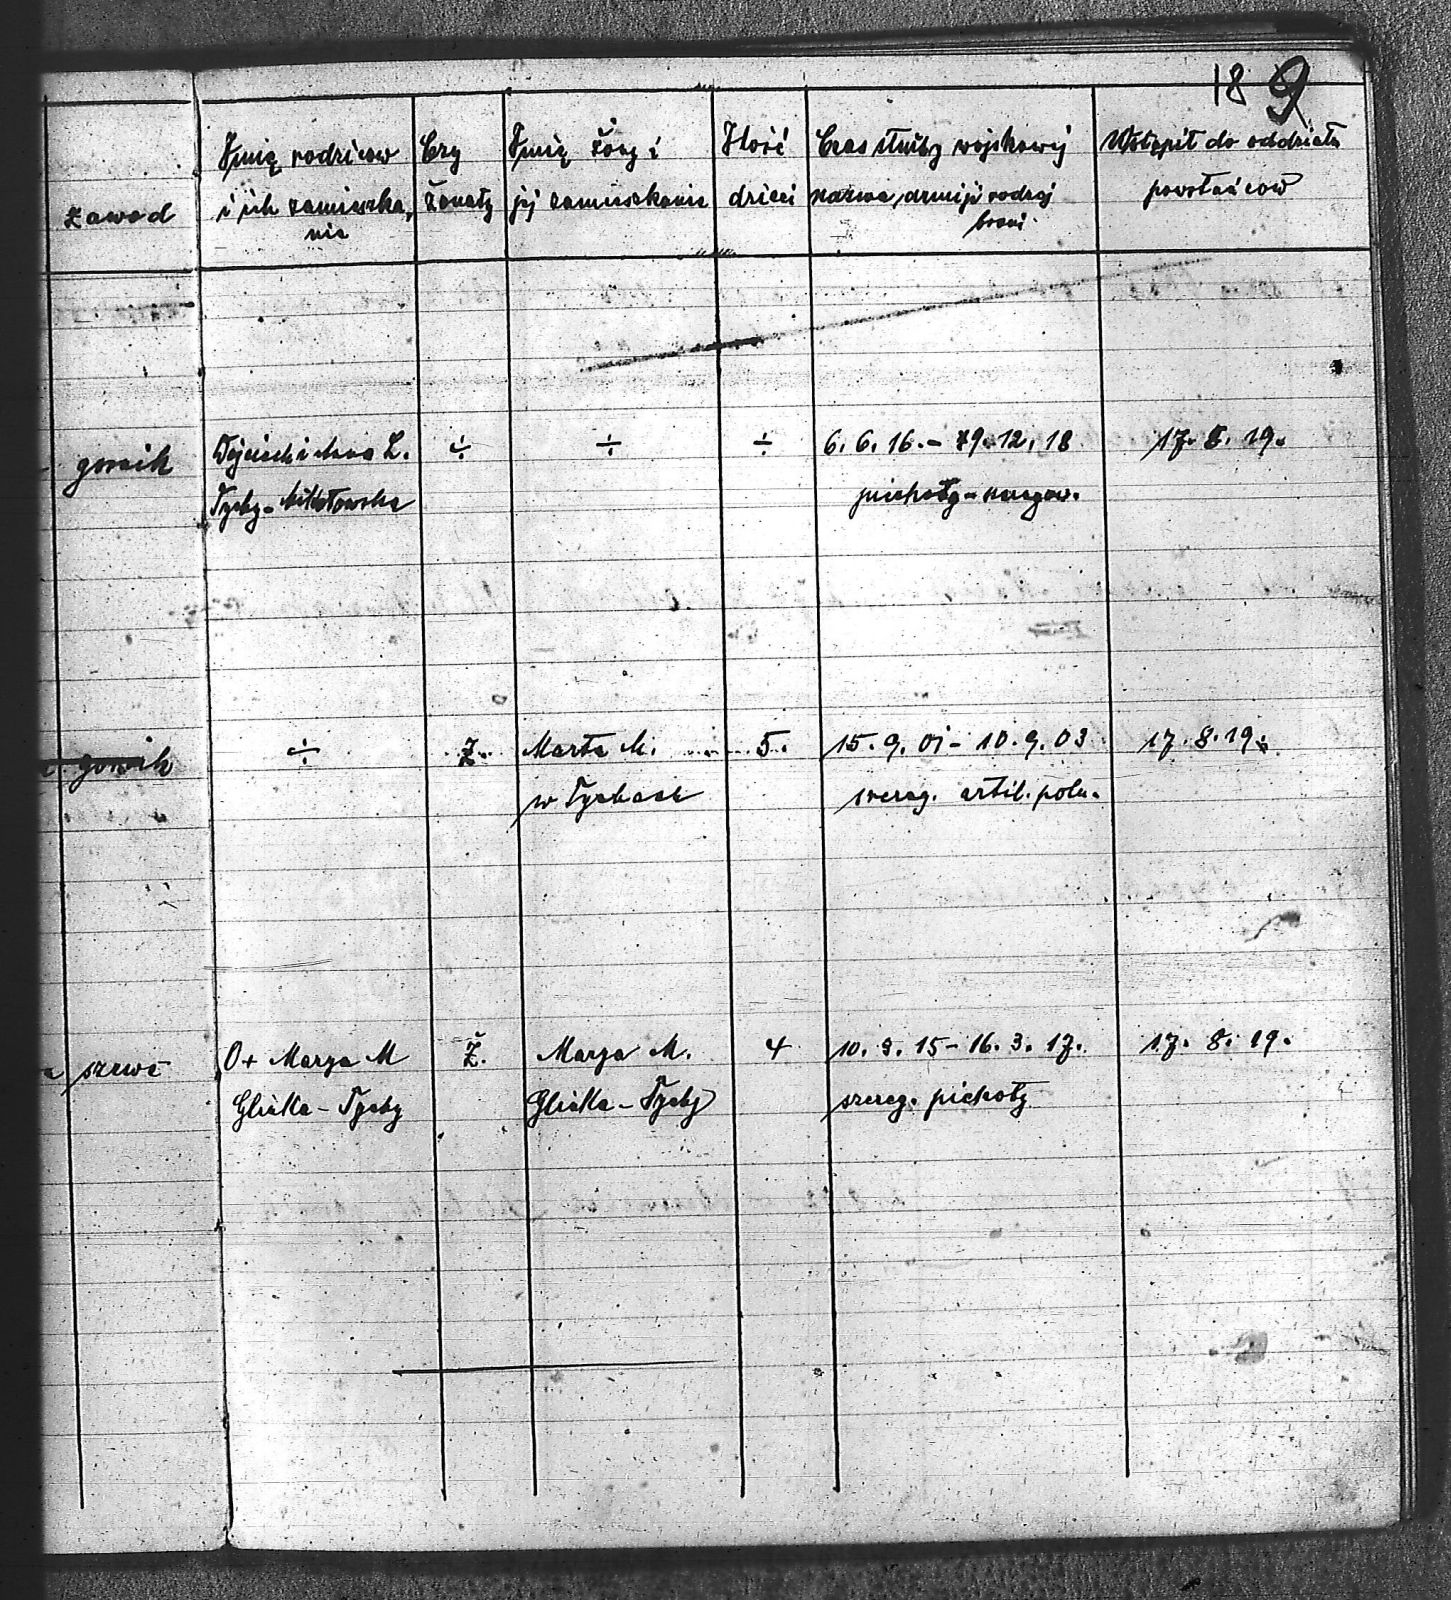 18 9
zawod
Imię rodzicow
i ich zamieszka,
nie
Czy
żonaty
Imię żony i
jej zamieszkanie
Ilość
dzieci
Czas służby wojskowej
nazwa, armji rodzaj
broni
Wstąpił do oddziału
powstańcow
gornik
Wojciech i Anna L.
Tychy - Mikołowska
÷
÷
÷
6. 6. 16. - 29. 12. 18
piechoty -
17. 8. 19.
gornik
÷
Ż.
Marta M.
w Tychach
5.
15. 9. 01 - 10. 9. 03
szereg. artil. poln.
17. 8. 19.
szewc
O+ Marya M
Glinka - Tychy
Ż.
Marya M.
Glinka - Tychy
4
10. 9. 15 - 16. 3. 17.
szereg. piechoty
17. 8. 19.